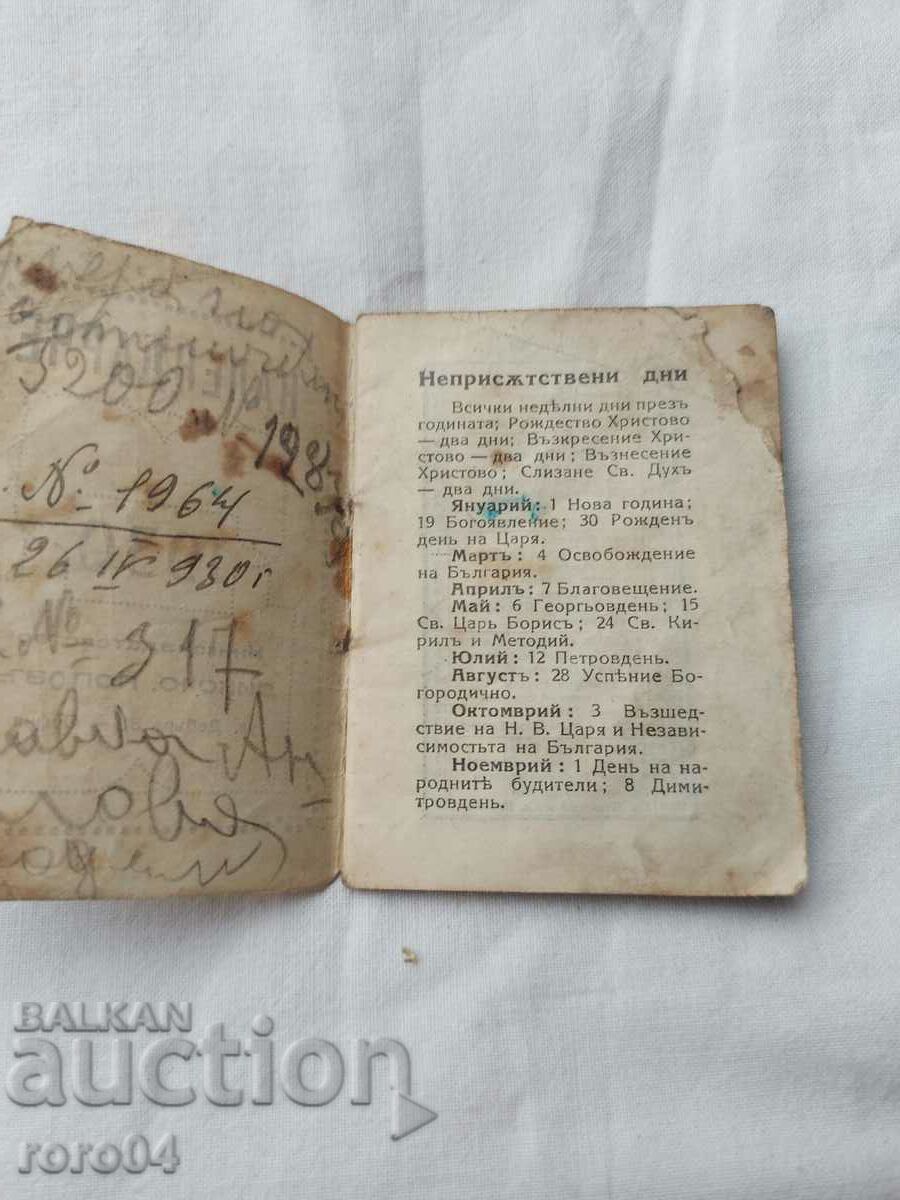 5200
198
№ 1964
26 IV 930 г
№ 317
Неприсѫтствени дни
Всички недѣлни дни презъ
годината; Рождество Христово
— два дни; Възкресение Хри-
стово — два дни; Възнесение
Христово; Слизане Св. Духъ
— два дни.
Януарий: 1 Нова година;
19 Богоявление; 30 Рожденъ
день на Царя.
Мартъ: 4 Освобождение
на България.
Априлъ: 7 Благовещение.
Май: 6 Георгьовдень; 15
Св. Царь Борисъ; 24 Св. Ки-
рилъ и Методий.
Юлий: 12 Петровдень.
Августъ: 28 Успѣние Бо-
городично.
Октомврий: 3 Възшед-
ствие на Н. В. Царя и Незави-
симостьта на България.
Ноемврий: 1 День на на-
роднитѣ будители; 8 Дими-
тровдень.
BALKAN
auction
roro04